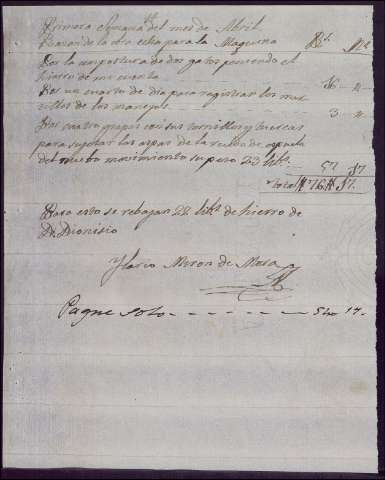 Primera Semana del mes de Abril
Remando la otra echa para la Maquina Rs. Ms.
Por la compostura de dos gatos poniendo el
hierro de mi cuenta 16 - "
Por un cuarto de dia para registrar los
de los manejos 3 - "
Por cuatro grapas con sus tornillos y tuercas
para sujetar las aspas de la rueda de
del nuevo movimiento su peso 23 lib.s 57 17
Total 76 17
Para esto se rebajan 22 lib.s de hierro de
Dn. Dionisio
Ylario Miron de Mota
Pague solo - - - - - - - 17.